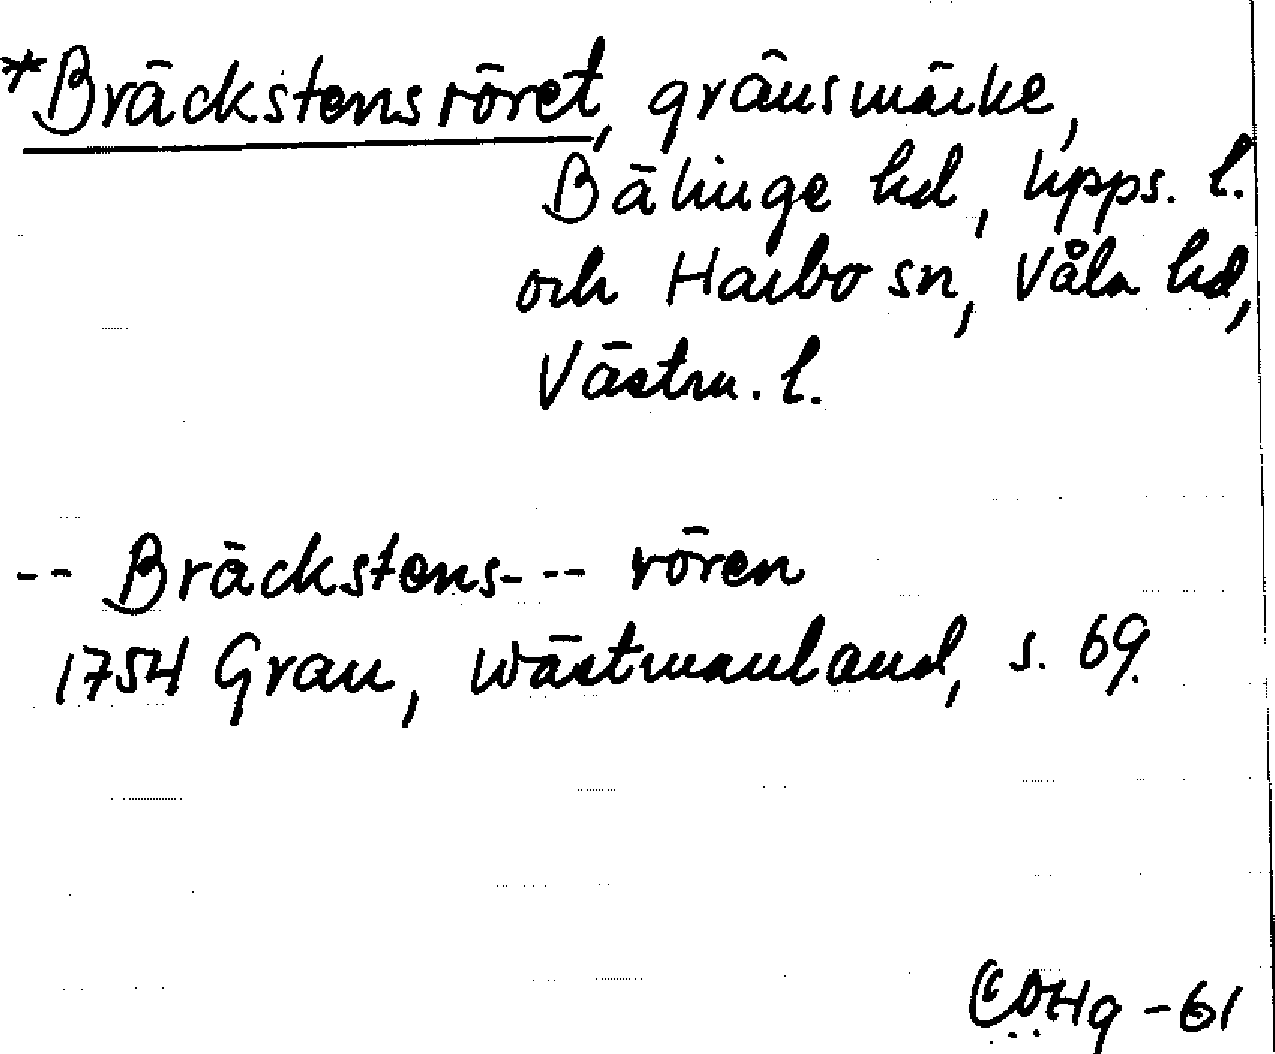 *Bräckstensröret, gränsmärke,
Bälinge hd, Upps. l.
och Harbo sn, Våla hd,
Västm. l.
-- Bräckstens- -- rören
1754 Grau, Wästmanland, s. 69.
-61